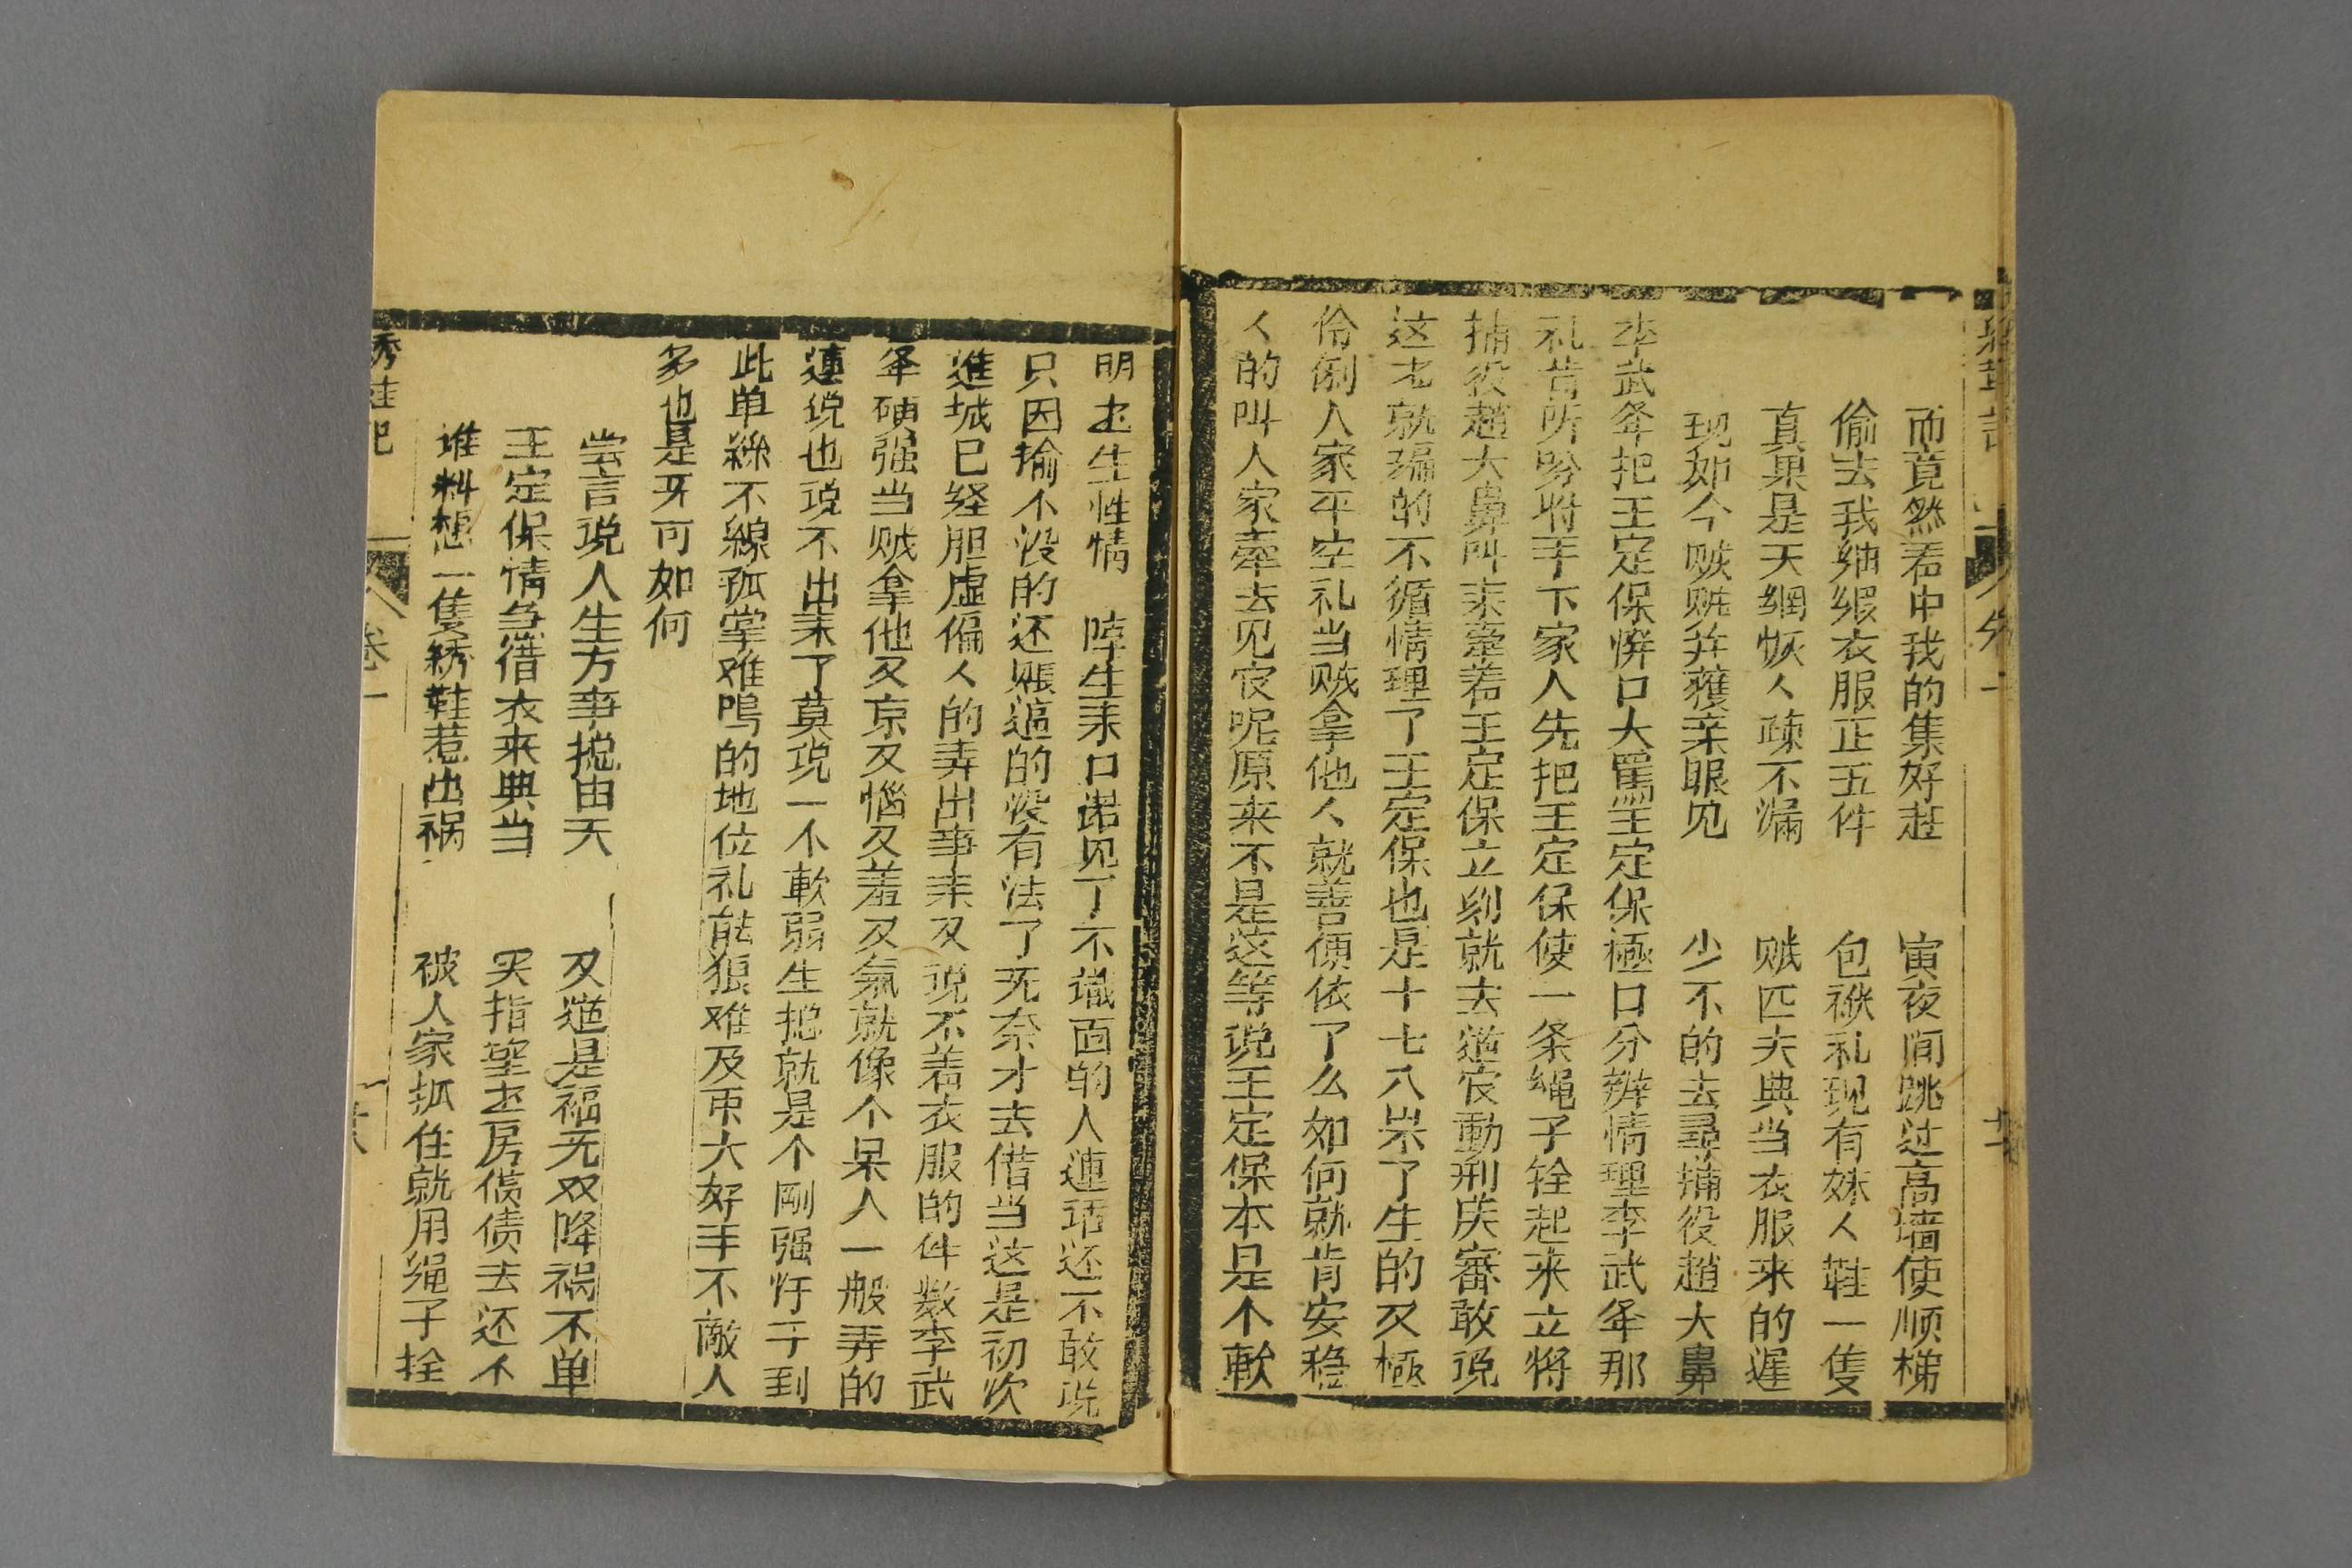 而竟然若中我的集好赶 寅夜间跳过高墙使顺梯
偷去我䌷缎衣服正五件 包袱礼现有妹人鞋一隻
真果是天網恢人疎不漏 贼匹夫典当衣服来的遲
现如今贼赃并获亲眼见 少不的去尋捕役趙大鼻
李武举把王定保恲口大罵王定保極口分辨情理李武举那
礼肯听吩咐手下家人先把王定保使一条绳子铨起来立将
捕役趙大鼻叫来牽着王定保立刻就去送官動刑庆審敢说
这才就瑞的不循情理了王定保也是十七八岁了生的又極
伶俐人家平空礼当贼拿他人就善便依了么如何就肯安稳
人的叫人家牽去见官呢原来不是这等说王定保本是个軟
明土生性情 陡生来口诺见了不識面的人連话还不敢说
只因输不没的还賬逼的没有法了无奈才去借当这是初次
進城已经胆虚偏人的弄出事来又说不着衣服的件数李武
举硬强当贼拿他又京又惱又羞又氣就像个呆人一般弄的
連说也说不出来了莫说一个軟弱生掍就是个剛强忓子到
此单絲不線孤掌难鳴的地位礼能狼难及帀大好手不敵人
多也是牙可如何
尝言说人生万事掍由天 又道是福无双降祸不单
王定保情急借衣来典当 实指望土房债债去还不
谁料想一隻綉鞋惹出祸 被人家抓住就用绳子拴
綉鞋记 卷一